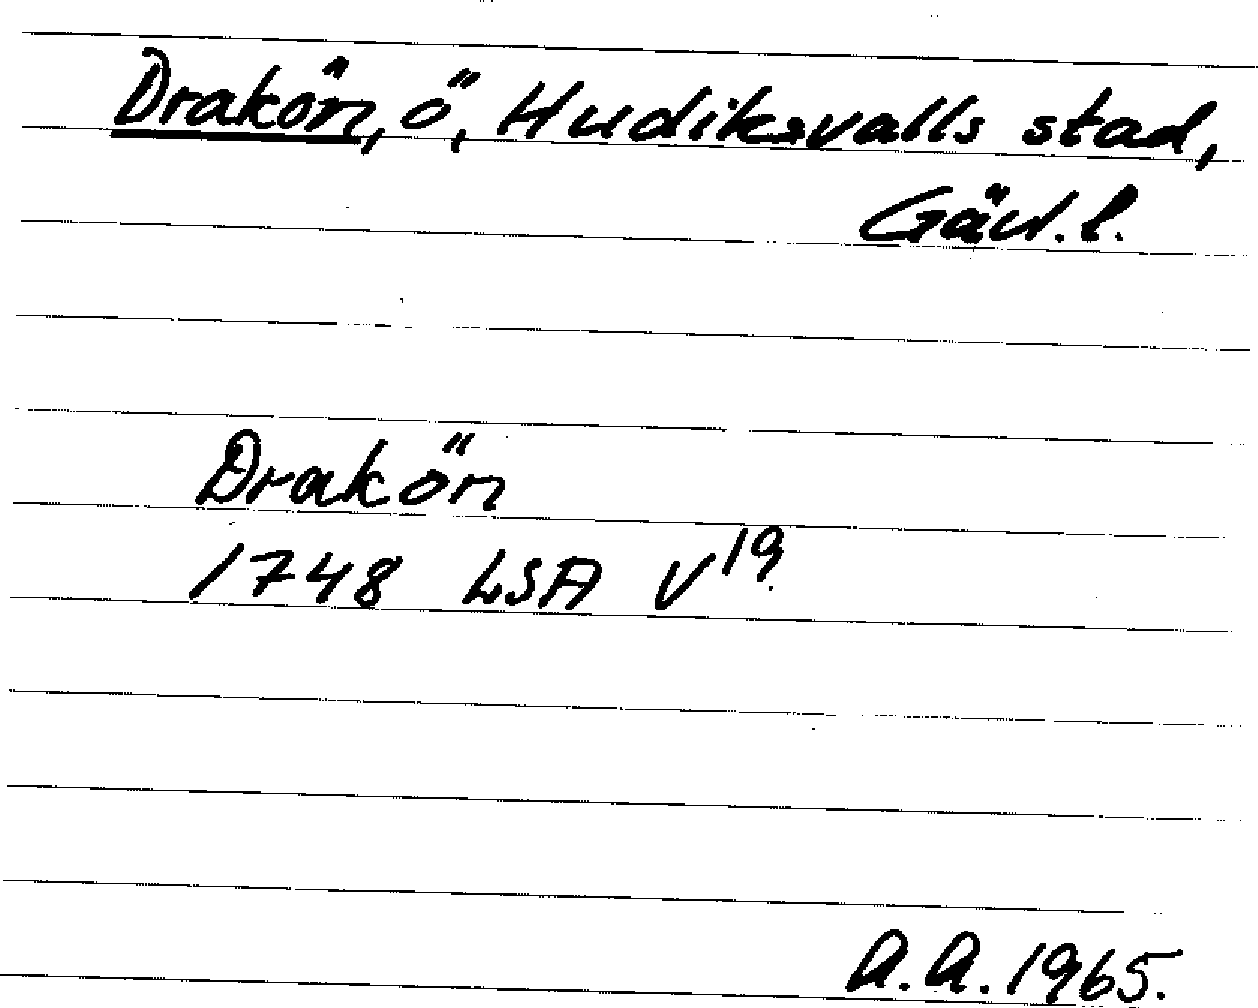 Drakön, ö, Hudiksvalls stad,
Gävl. l.
Drakön
1748 LSA V¹⁹.
A.A. 1965.